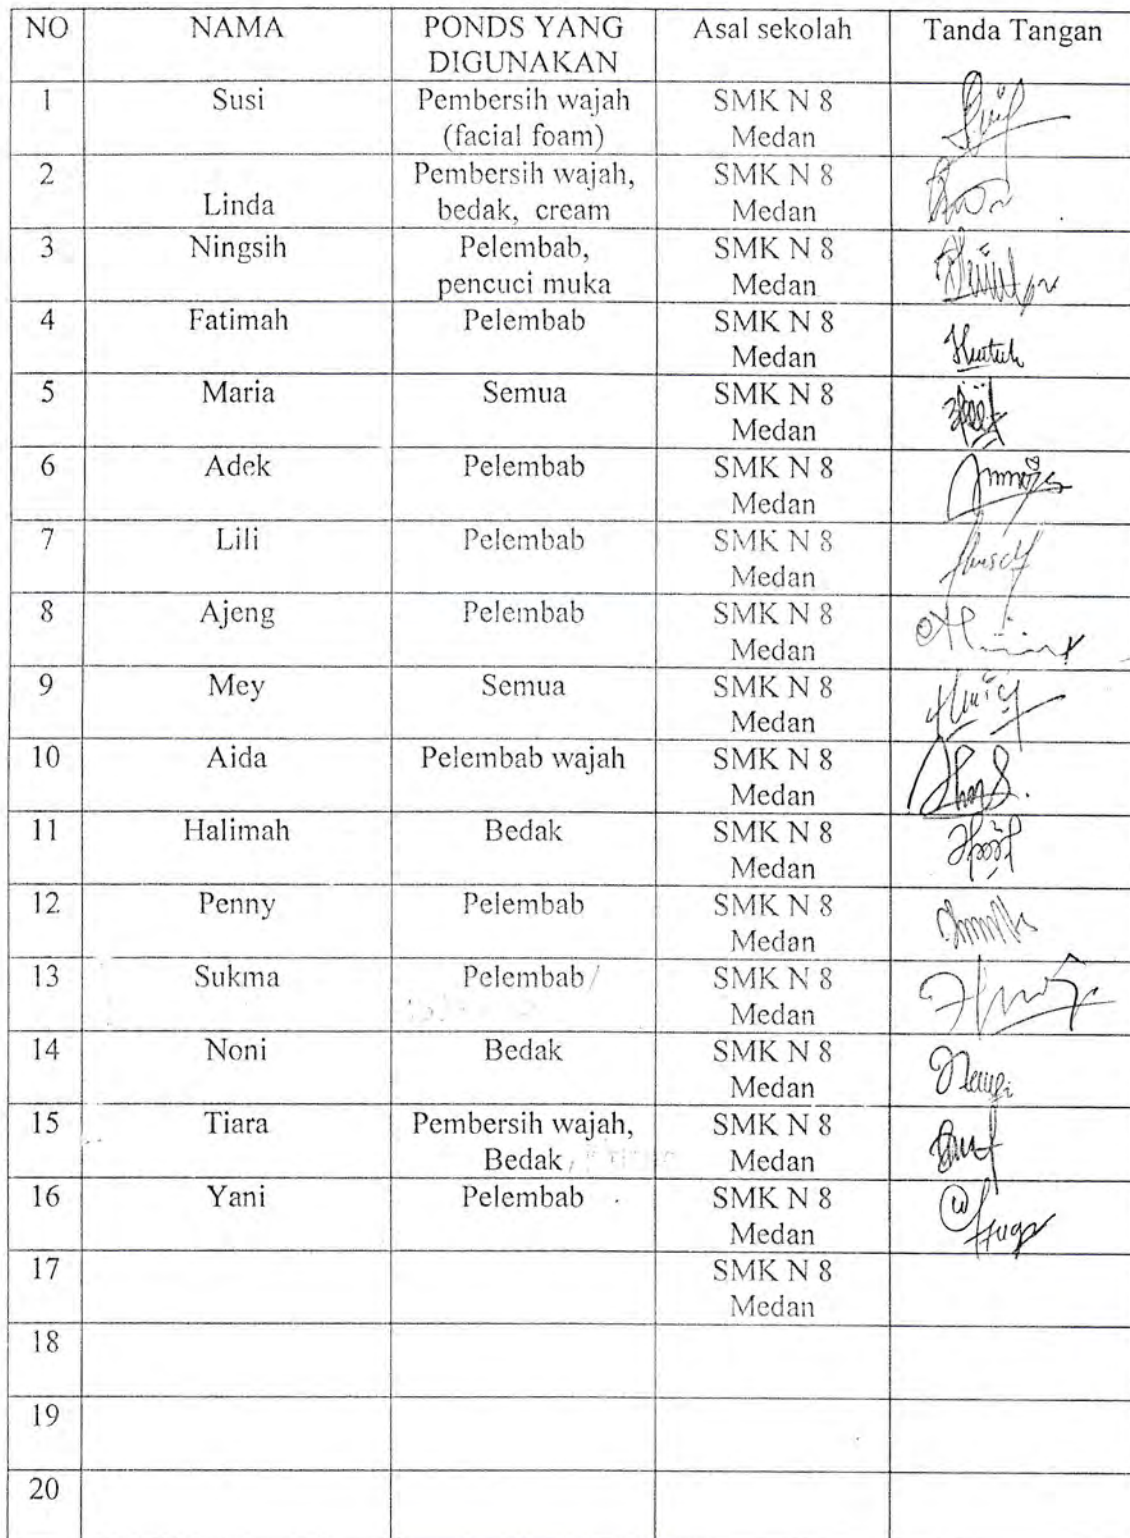 NO NAMA PONDS YANG DIGUNAKAN Asal sekolah Tanda Tangan
1 Susi Pembersih wajah (facial foam) SMK N 8 Medan
2 Linda Pembersih wajah, bedak, cream SMK N 8 Medan
3 Ningsih Pelembab, pencuci muka SMK N 8 Medan
4 Fatimah Pelembab SMK N 8 Medan
5 Maria Semua SMK N 8 Medan
6 Adek Pelembab SMK N 8 Medan
7 Lili Pelembab SMK N 8 Medan
8 Ajeng Pelembab SMK N 8 Medan
9 Mey Semua SMK N 8 Medan
10 Aida Pelembab wajah SMK N 8 Medan
11 Halimah Bedak SMK N 8 Medan
12 Penny Pelembab SMK N 8 Medan
13 Sukma Pelembab/ SMK N 8 Medan
14 Noni Bedak SMK N 8 Medan
15 Tiara Pembersih wajah, Bedak, SMK N 8 Medan
16 Yani Pelembab SMK N 8 Medan
17 SMK N 8 Medan
18
19
20